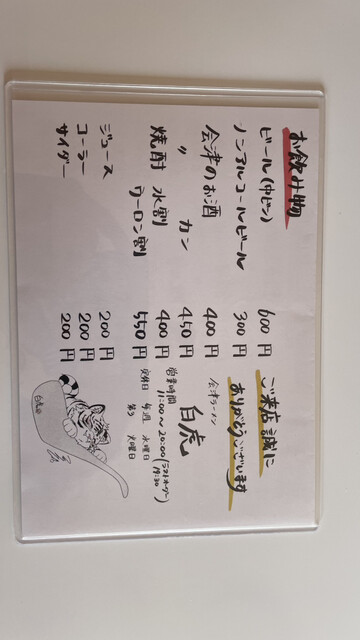 お飲み物
ビール(中ビン) 600円
ノンアルコールビール 300円
会津のお酒 400円
〃 カン 450円
焼酎 水割 400円
ウーロン割 550円
ジュース 200円
コーラー 200円
サイダー 200円
ご来店誠に
ありがとうございます
会津ラーメン
白虎
営業時間
11:00〜20:00(ラストオーダー 19:30)
定休日 毎週 水曜日
第3 火曜日